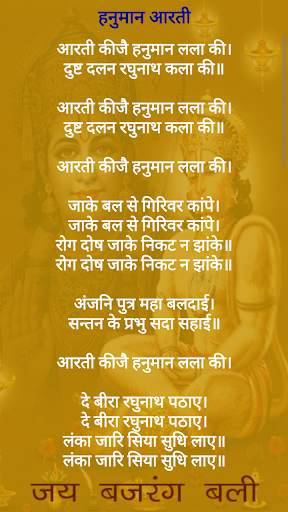 हनुमान आरती
आरती कीजै हनुमान लला की।
दुष्ट दलन रघुनाथ कला की॥
आरती कीजै हनुमान लला की।
दुष्ट दलन रघुनाथ कला की॥
आरती कीजै हनुमान लला की।
जाके बल से गिरिवर कांपे।
जाके बल से गिरिवर कांपे।
रोग दोष जाके निकट न झांके॥
रोग दोष जाके निकट न झांके॥
अंजनि पुत्र महा बलदाई।
सन्तन के प्रभु सदा सहाई॥
आरती कीजै हनुमान लला की।
दे बीरा रघुनाथ पठाए।
दे बीरा रघुनाथ पठाए।
लंका जारि सिया सुधि लाए॥
लंका जारि सिया सुधि लाए॥
जय बजरंग बली